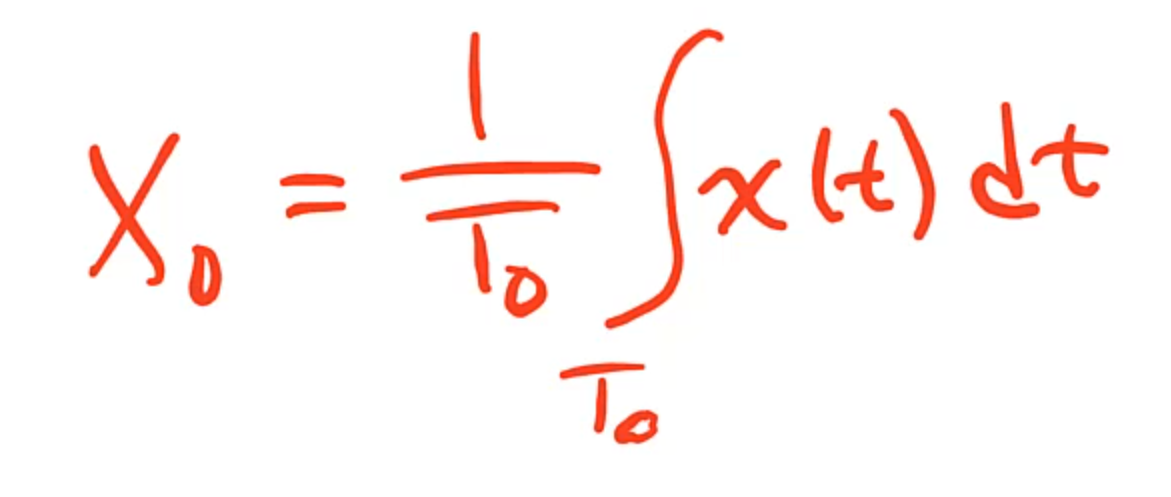 X₀ = 1/T₀ ∫_T₀ x(t) dt